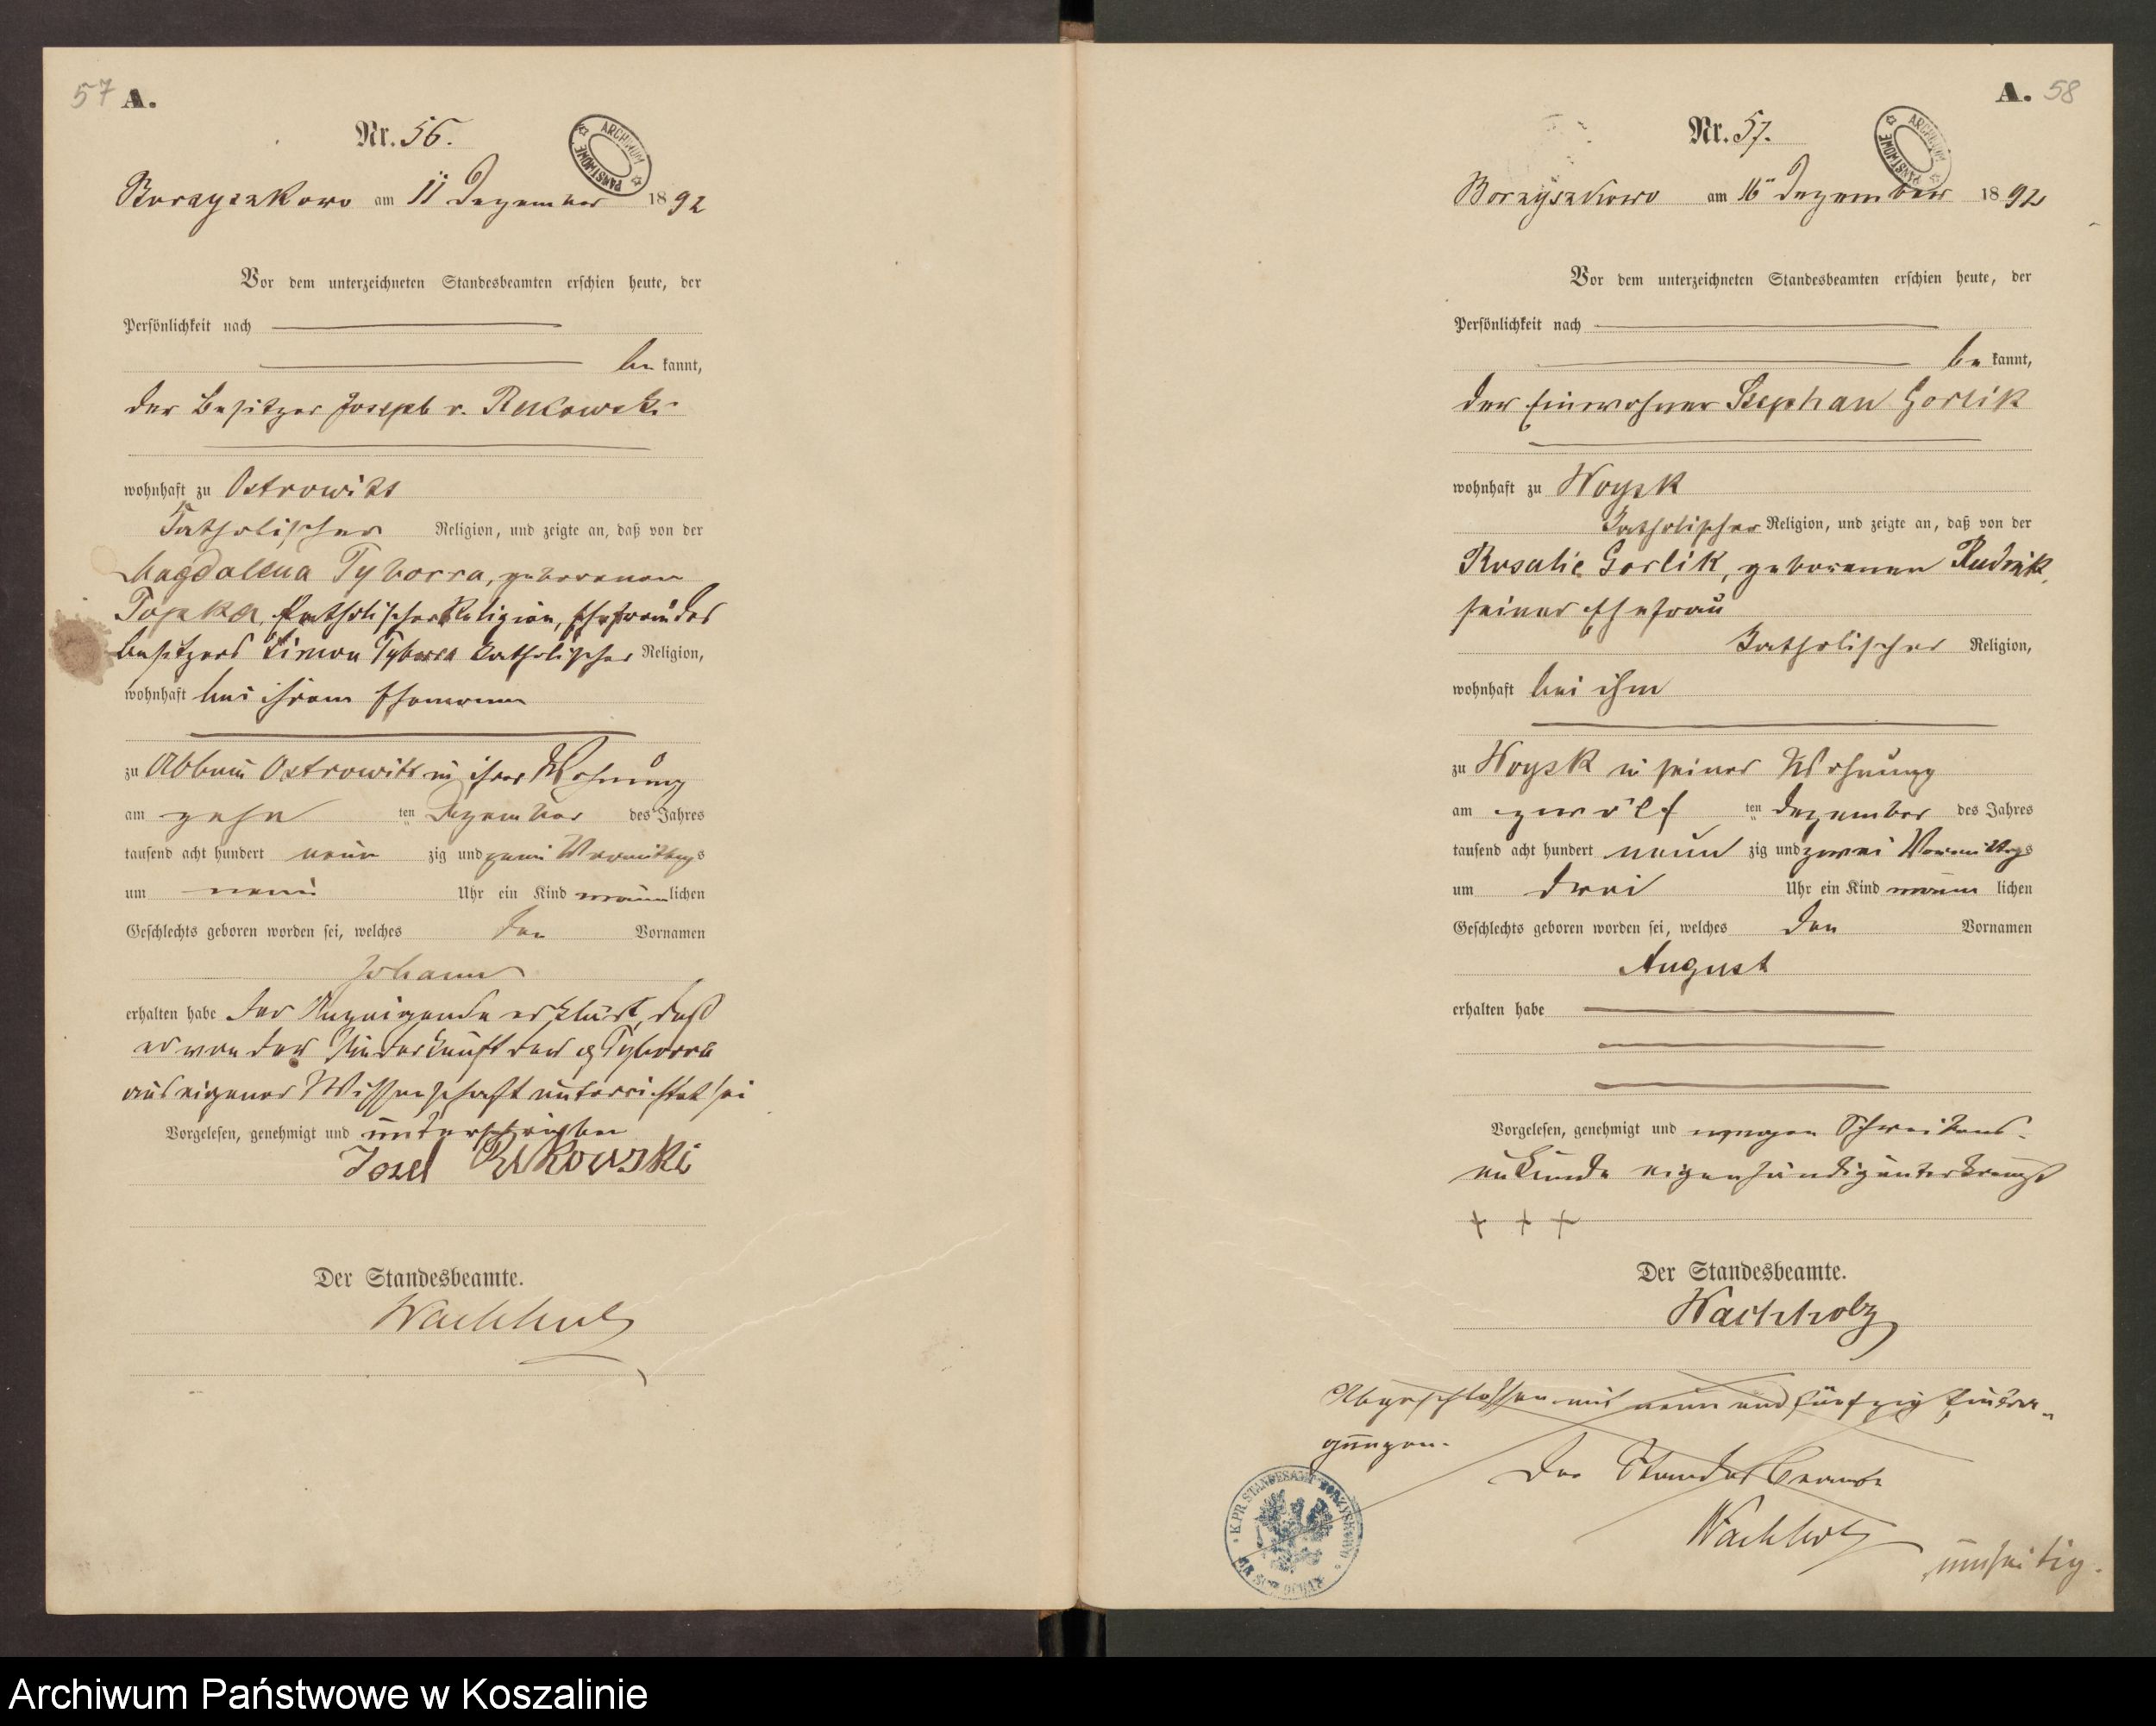 57 A.
Nr. 56.
ARCHIWUM PAŃSTWOWE
Borzyszkowo am 11 Dezember 1892
Vor dem unterzeichneten Standesbeamten erschien heute, der
Persönlichkeit nach
be kannt,
der Besitzer Joseph v. Rekowski
wohnhaft zu Ostrowitt
katholischer Religion, und zeigte an, daß von der
Magdalena Tyborra, geborenen
Topka, katholischer Religion, Ehefrau des
Besitzers Simon Tyborra katholischer Religion,
wohnhaft bei ihrem Ehemanne
zu Abbau Ostrowitt in ihrer Wohnung
am zehn ten Dezember des Jahres
tausend acht hundert neun zig und zwei Vormittags
um neun Uhr ein Kind männlichen
Geschlechts geboren worden sei, welches den Vornamen
Johann
erhalten habe Der Anzeigende erklärt, daß
er von der Niederkunft der Tyborra
aus eigener Wissenschaft unterrichtet sei
Vorgelesen, genehmigt und unterschrieben
Josef Rekowski
Der Standesbeamte.
Wachholz
A. 58
Nr. 57.
ARCHIWUM PAŃSTWOWE
Borzyszkowo am 16ten Dezember 1892
Vor dem unterzeichneten Standesbeamten erschien heute, der
Persönlichkeit nach
be kannt,
der Einwohner Stephan Gorlik
wohnhaft zu Woysk
katholischer Religion, und zeigte an, daß von der
Rosalie Gorlik, geborenen Rudnik,
seiner Ehefrau
katholischer Religion,
wohnhaft bei ihm
zu Woysk in seiner Wohnung
am zwölf ten Dezember des Jahres
tausend acht hundert neun zig und zwei Vormittags
um drei Uhr ein Kind männ lichen
Geschlechts geboren worden sei, welches den Vornamen
August
erhalten habe
Vorgelesen, genehmigt und wegen Schreibens-
unkunde eigenhändig unterkreuzt
+ + +
Der Standesbeamte.
Wachholz
Abgeschlossen mit neun und fünfzig Eintra-
gungen.
Der Standesbeamte
Wachholz
umseitig.
K. PR. STANDESAMT BORZYSKOWO
Archiwum Państwowe w Koszalinie